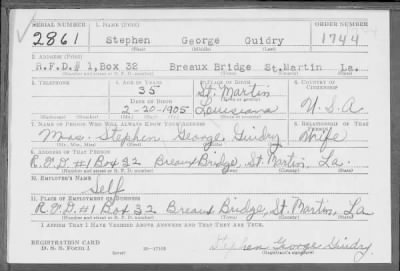 SERIAL NUMBER 1. NAME (Print) ORDER NUMBER
2861 Stephen George Guidry 1744
(First) (Middle) (Last)
2. ADDRESS (Print)
R.F.D.# 1,Box 32 Breaux Bridge St.Martin La.
(Number and street or R. F. D. number) (Town) (County) (State)
3. TELEPHONE 4. AGE IN YEARS 5. PLACE OF BIRTH 6. COUNTRY OF CITIZENSHIP
35 St. Martin
DATE OF BIRTH
2-20-1905 Louisiana U.S.A.
7. NAME OF PERSON WHO WILL ALWAYS KNOW YOUR ADDRESS 8. RELATIONSHIP OF THAT PERSON
Mrs. Stephen George Guidry Wife
(Mr., Mrs., Miss) (First) (Middle) (Last)
9. ADDRESS OF THAT PERSON
R.F.D. #1 Box 32 Breaux Bridge, St. Martin, La.
(Number and street or R. F. D. number) (Town) (County) (State)
10. EMPLOYER'S NAME
Self
11. PLACE OF EMPLOYMENT OR BUSINESS
R.F.D. #1 Box 32 Breaux Bridge, St. Martin, La
(Number and street or R. F. D. number) (Town) (County) (State)
I AFFIRM THAT I HAVE VERIFIED ABOVE ANSWERS AND THAT THEY ARE TRUE.
REGISTRATION CARD
D. S. S. Form 1 16—17105 Stephen George Guidry
(Registrant's signature)